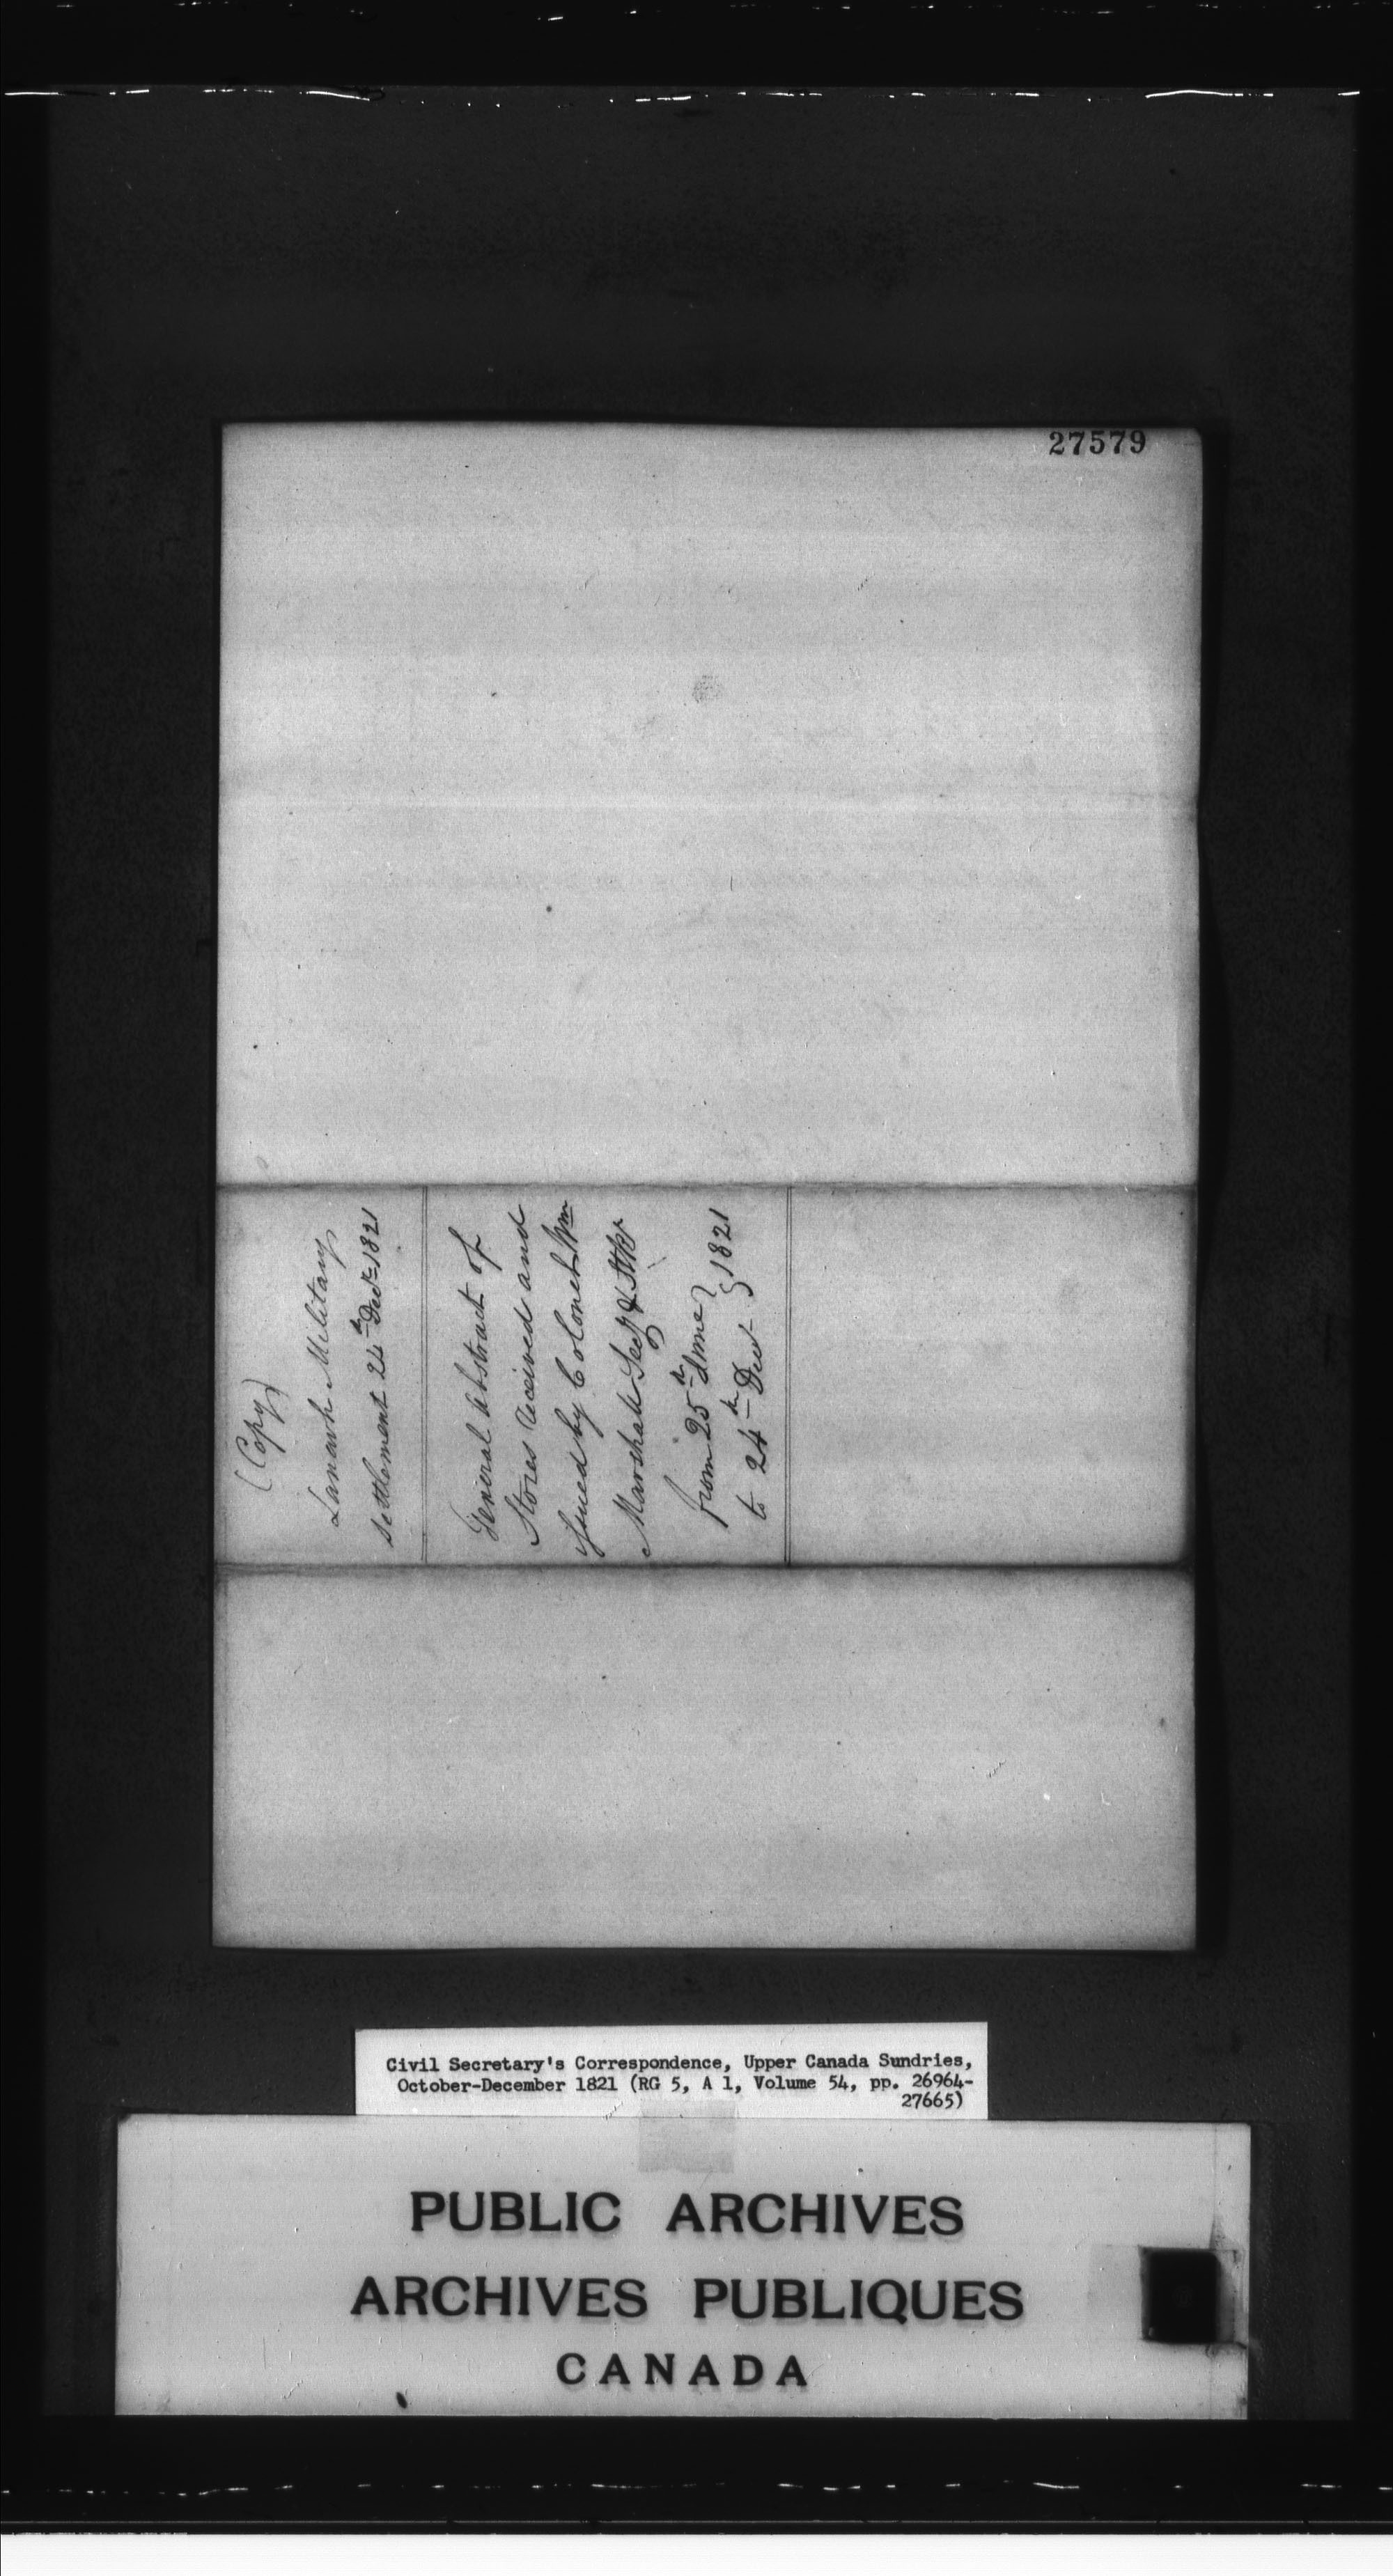 27579
(Copy)
Lanark Military
Settlement 24th Decr 1821
General Abstract of
Stores received and
issued by Colonel Wm
Marshall Secy & Stkr
from 25th June } 1821
to 24th Decr
Civil Secretary's Correspondence, Upper Canada Sundries,
October-December 1821 (RG 5, A 1, Volume 54, pp. 26964-
27665)
PUBLIC ARCHIVES
ARCHIVES PUBLIQUES
CANADA